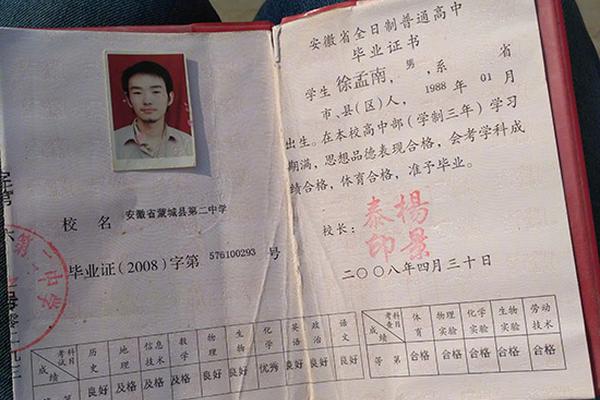 校名 安徽省蒙城县第二中学
毕业证(2008)字第 576100293 号
考试科目 历史 地理 信息技术 数学 物理 生物 化学 英语 政治 语文
成绩 良好 及格 及格 及格 良好 良好 优秀 良好 良好 良好
安徽省全日制普通高中
毕业证书
学生 徐孟南,男,系 省
市、县(区)人,1988年01月
出生。在本校高中部(学制三年)学习
期满,思想品德表现合格,会考学科成
绩合格,体育合格,准予毕业。
校长:
杨景泰印
二〇〇八年四月三十日
考查科目 体育 物理实验 化学实验 生物实验 劳动技术
等第 合格 合格 合格 合格 合格
第二中学